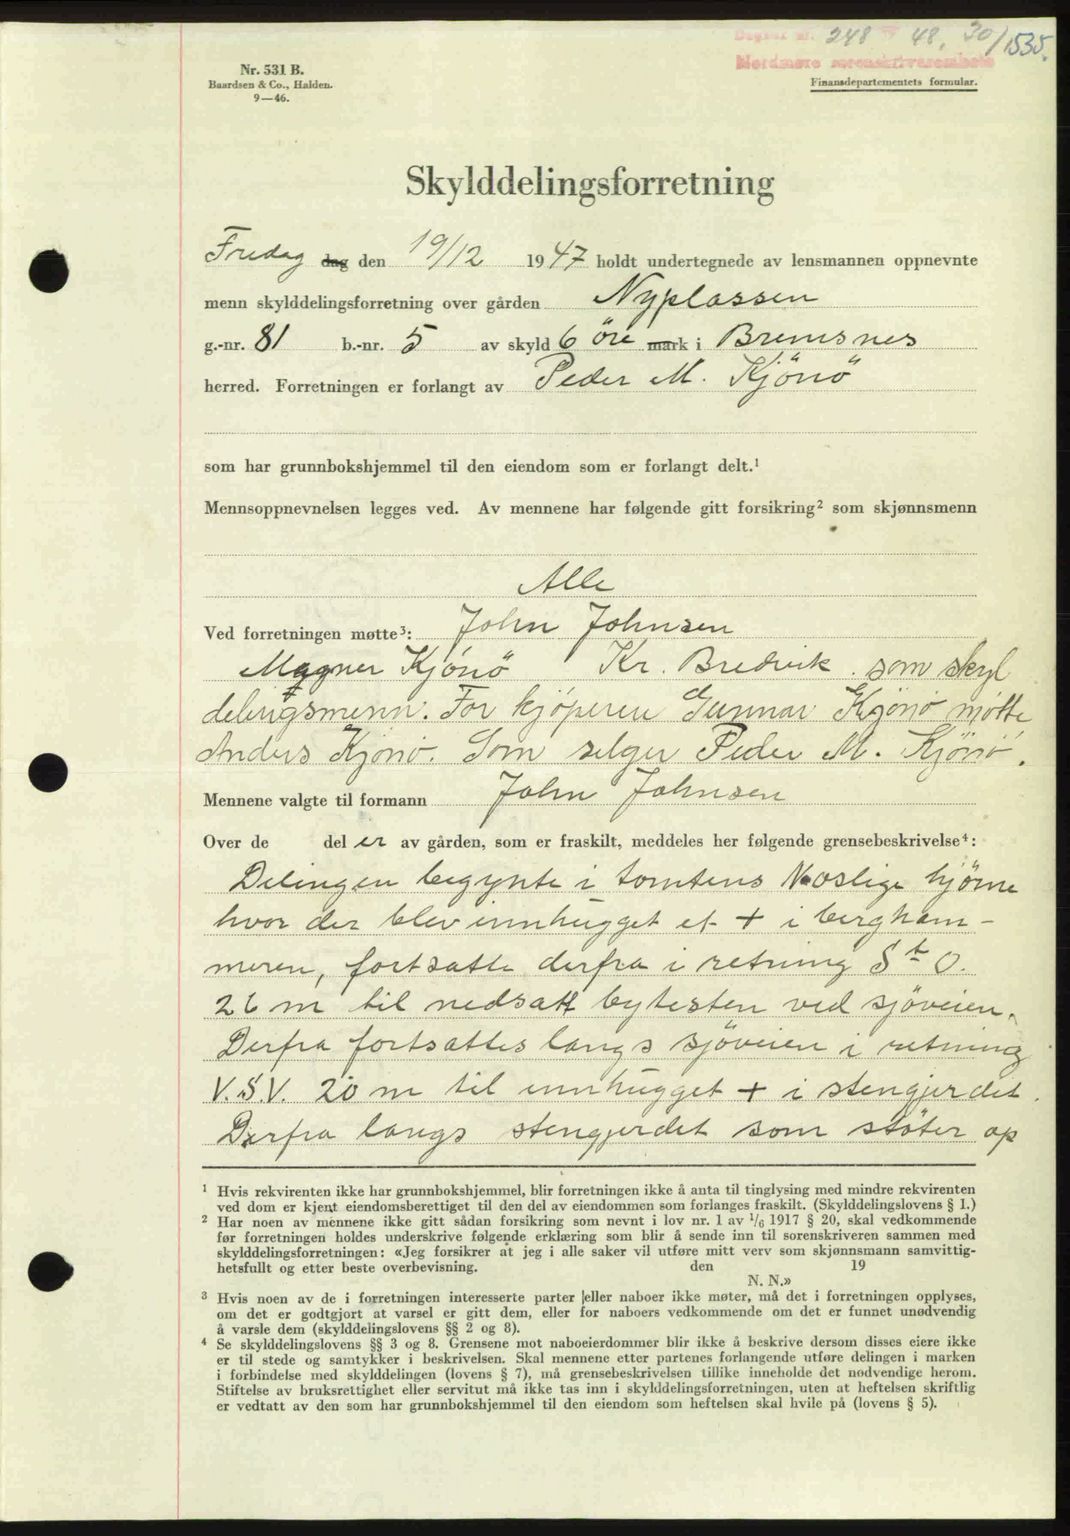 Dagbok nr. 248 48. 30/1535.
Nordmøre sorenskriverembete
Nr. 531 B.
Baardsen & Co., Halden.
9—46.
Finansdepartementets formular.
Skylddelingsforretning
Fredag dag den 19/12 1947 holdt undertegnede av lensmannen oppnevnte
menn skylddelingsforretning over gården Nyplassen
g.-nr. 81 b.-nr. 5 av skyld 6 öre mark i Bremsnes
herred. Forretningen er forlangt av Peder M. Kjönö
som har grunnbokshjemmel til den eiendom som er forlangt delt.¹
Mennsoppnevnelsen legges ved. Av mennene har følgende gitt forsikring² som skjønnsmenn
Alle
Ved forretningen møtte³: John Johnsen
Magner Kjönö Kr. Bredvik som skyl
delingsmenn. For kjöperen Gunnar Kjönö møtte
Anders Kjönö. Som selger Peder M. Kjönö.
Mennene valgte til formann John Johnsen
Over de del er av gården, som er fraskilt, meddeles her følgende grensebeskrivelse⁴:
Delingen begynte i tomtens N. oslige hjörne
hvor der blev innhugget et + i bergham-
meren, fortsatte derfra i retning S t O.
26 m til nedsatt bytesten ved sjöveien.
Derfra fortsattes langs sjöveien i retning
V.S.V. 20 m til innhugget + i stengjerdet.
Derfra langs stengjerdet som stöter op
¹ Hvis rekvirenten ikke har grunnbokshjemmel, blir forretningen ikke å anta til tinglysing med mindre rekvirenten
ved dom er kjent eiendomsberettiget til den del av eiendommen som forlanges fraskilt. (Skylddelingslovens § 1.)
² Har noen av mennene ikke gitt sådan forsikring som nevnt i lov nr. 1 av 1/6 1917 § 20, skal vedkommende
før forretningen holdes underskrive følgende erklæring som blir å sende inn til sorenskriveren sammen med
skylddelingsforretningen: «Jeg forsikrer at jeg i alle saker vil utføre mitt verv som skjønnsmann samvittig-
hetsfullt og etter beste overbevisning. den 19
N. N.»
³ Hvis noen av de i forretningen interesserte parter eller naboer ikke møter, må det i forretningen opplyses,
om det er godtgjort at varsel er gitt dem, eller for naboers vedkommende om det er funnet unødvendig
å varsle dem (skylddelingslovens §§ 2 og 8).
⁴ Se skylddelingslovens §§ 3 og 8. Grensene mot naboeierdommer blir ikke å beskrive dersom disses eiere ikke
er til stede og samtykker i beskrivelsen. Skal mennene etter partenes forlangende utføre delingen i marken
i forbindelse med skylddelingen (lovens § 7), må grensebeskrivelsen tillike inneholde det nødvendige herom.
Stiftelse av bruksrettighet eller servitut må ikke tas inn i skylddelingsforretningen, uten at heftelsen skriftlig
er vedtatt av den som har grunnbokshjemmel til den eiendom som heftelsen skal hvile på (lovens § 5).